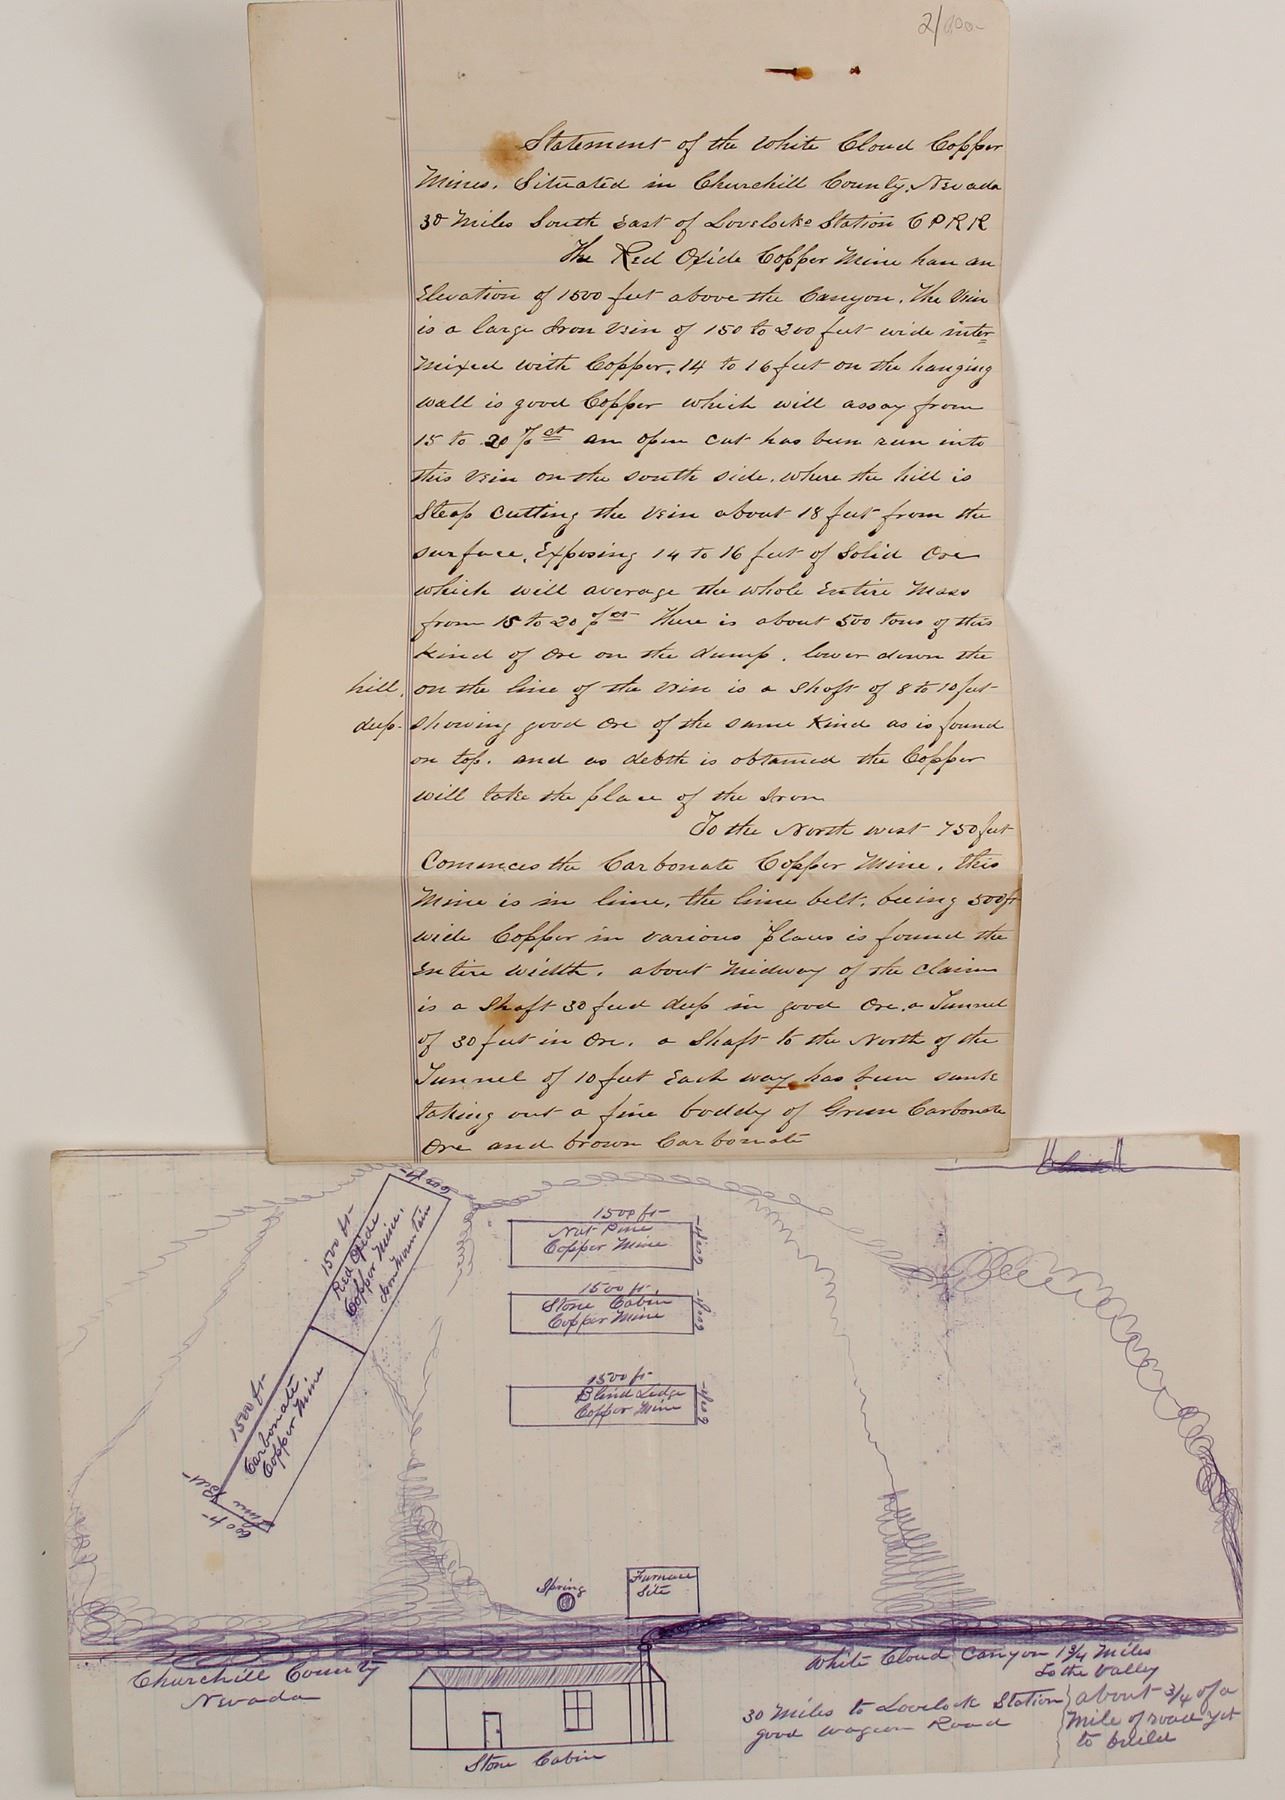 2/000-
Statement of the White Cloud Copper
Mines. Situated in Churchill County, Nevada
30 Miles South East of Lovelocks Station C P R R
The Red Oxide Copper Mine has an
Elevation of 1500 feet above the Canyon. The Vein
is a large Iron Vein of 150 to 200 feet wide inter-
mixed with Copper. 14 to 16 feet on the hanging
wall is good Copper which will assay from
15 to 20 p ct an open cut has been run into
this Vein on the south side. where the hill is
Steap cutting the Vein about 18 feet from the
surface. Exposing 14 to 16 feet of Solid Ore
which will average the whole Entire Mass
from 15 to 20 p ct There is about 500 tons of this
Kind of Ore on the dump. lower down the
hill. on the line of the Vein is a Shaft of 8 to 10 feet
deep. showing good Ore of the same Kind as is found
on top. and as debth is obtained the Copper
will take the place of the Iron
To the North west 750 feet
Comences the Carbonate Copper Mine. this
Mine is in lime. the lime belt. beeing 500 ft
wide Copper in various places is found the
Entire width. about Midway of the Claim
is a Shaft 30 feed deep in good Ore. a Tunnel
of 30 feet in Ore. a Shaft to the North of the
Tunnel of 10 feet Each way has been sunk
taking out a fine boddy of Green Carbonate
Ore and brown Carbonate
600 ft
1500 ft
Red Oxide
Copper Mine.
Iron Mountain
1500 ft
Carbonate
Copper Mine
Lime Belt
600 ft
1500 ft
Nut Pine
Copper Mine
600 ft
1500 ft
Stone Cabin
Copper Mine
600 ft
1500 ft
Blind Ledge
Copper Mine
600 ft
Spring
Furnace
Site
Churchill County
Nevada
Stone Cabin
White Cloud Canyon 1 3/4 Miles
to the Valley
30 Miles to Lovelock Station
good wagon Road
about 3/4 of a
Mile of road yet
to build